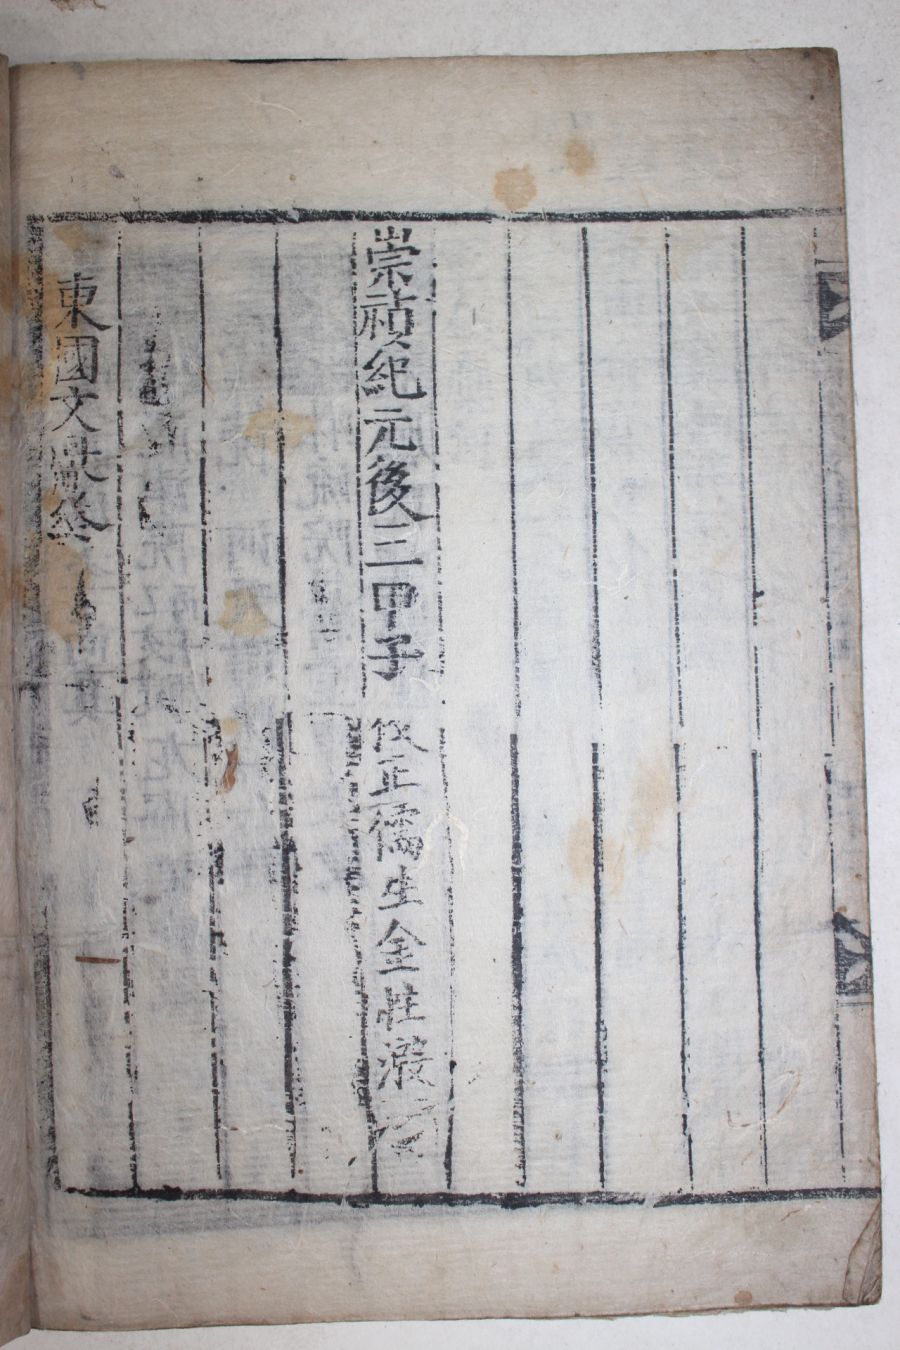 崇禎紀元後三甲子 校正儒生全莊潑
東國文獻終